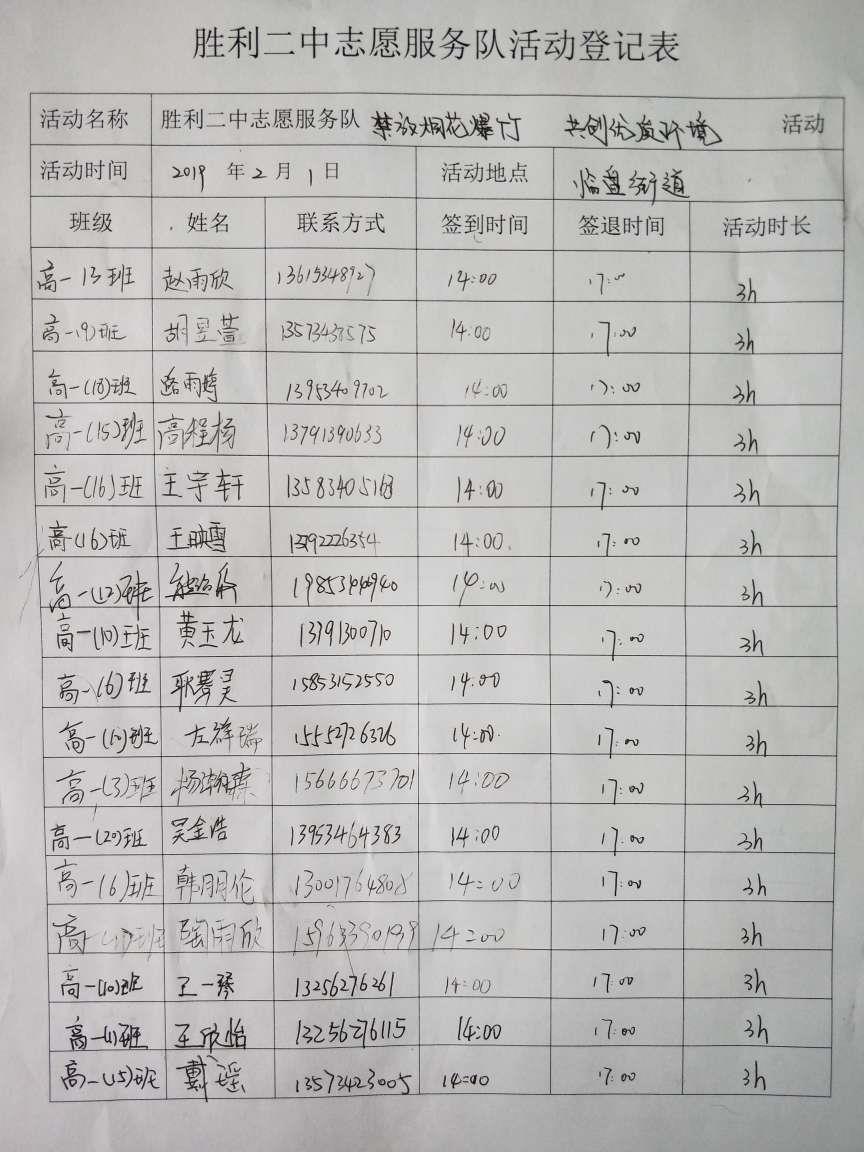 胜利二中志愿服务队活动登记表
活动名称 胜利二中志愿服务队 禁放烟花爆竹 共创优质环境 活动
活动时间 2019 年 2 月 1 日 活动地点 临盘街道
班级 姓名 联系方式 签到时间 签退时间 活动时长
高一13班 赵雨欣 13615348927 14:00 17:00 3h
高一(9)班 胡昱萱 13573438575 14:00 17:00 3h
高一(18)班 路雨婷 13953409702 14:00 17:00 3h
高一(15)班 高程杨 13791390633 14:00 17:00 3h
高一(16)班 王宇轩 13583405168 14:00 17:00 3h
高(16)班 王映雪 13792226354 14:00 17:00 3h
高一(12)班 14:00 17:00 3h
高一(10)班 黄玉龙 13791300710 14:00 17:00 3h
高一(6)班 耿霁昊 15853152550 14:00 17:00 3h
高一(10)班 左祥瑞 15552726326 14:00 17:00 3h
高一(3)班 杨瀚森 15666673701 14:00 17:00 3h
高一(20)班 吴金浩 13953464383 14:00 17:00 3h
高一(6)班 韩朋伦 13001764808 14:00 17:00 3h
高一 班 陶雨欣 15963390199 14:00 17:00 3h
高一(10)班 王一琴 13256276261 14:00 17:00 3h
高一(1)班 王欣怡 13256276115 14:00 17:00 3h
高一(15)班 戴瑶 13573423005 14:00 17:00 3h